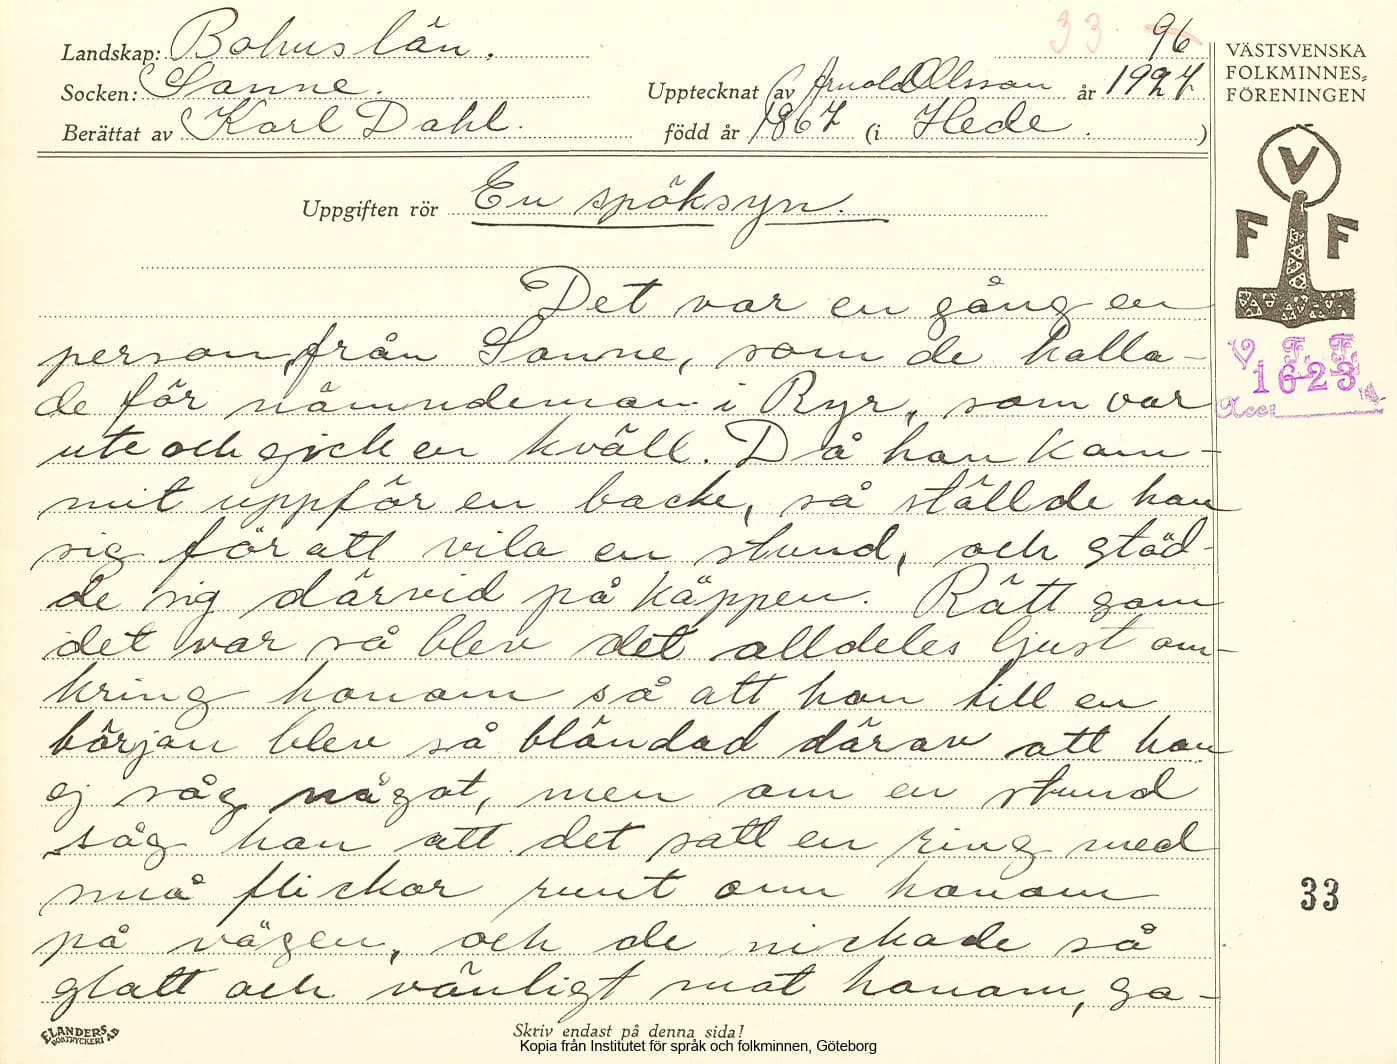 33 96
Landskap: Bohuslän.
Socken: Sanne. Upptecknat av Arnold Olsson år 1927
Berättat av Karl Dahl. född år 1867 (i Hede.)
VÄSTSVENSKA
FOLKMINNES-
FÖRENINGEN
V
F F
V. F. F.
1623
Acc:
Uppgiften rör En spöksyn.
Det var en gång en
person från Sanne, som de kalla-
de för nämndeman i Ryr, som var
ute och gick en kväll. Då han kom-
mit uppför en backe, så ställde han
sig för att vila en stund, och stöd-
de sig därvid på käppen. Rätt som
det var så blev det alldeles ljust om-
kring honom så att han till en
början blev så bländad därav att han
ej såg något, men om en stund
såg han att det satt en ring med
små flickor runt om honom
på vägen, och de nickade så
glatt och vänligt mot honom, ga-
33
ELANDERS
BOKTRYCKERI AB
Skriv endast på denna sida!
Kopia från Institutet för språk och folkminnen, Göteborg